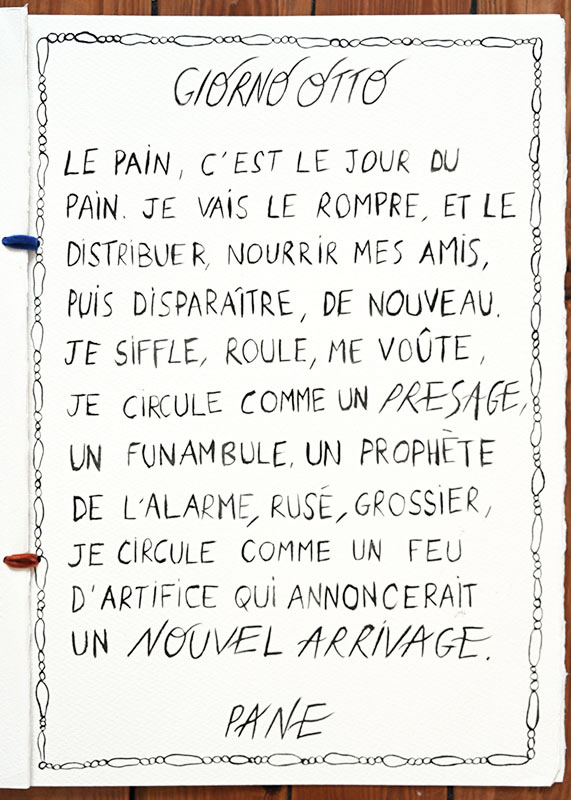 GIORNO OTTO
LE PAIN, C'EST LE JOUR DU
PAIN. JE VAIS LE ROMPRE, ET LE
DISTRIBUER, NOURRIR MES AMIS,
PUIS DISPARAÎTRE, DE NOUVEAU.
JE SIFFLE, ROULE, ME VOÛTE,
JE CIRCULE COMME UN PRESAGE,
UN FUNAMBULE, UN PROPHÈTE
DE L'ALARME, RUSÉ, GROSSIER,
JE CIRCULE COMME UN FEU
D'ARTIFICE QUI ANNONCERAIT
UN NOUVEL ARRIVAGE.
PANE